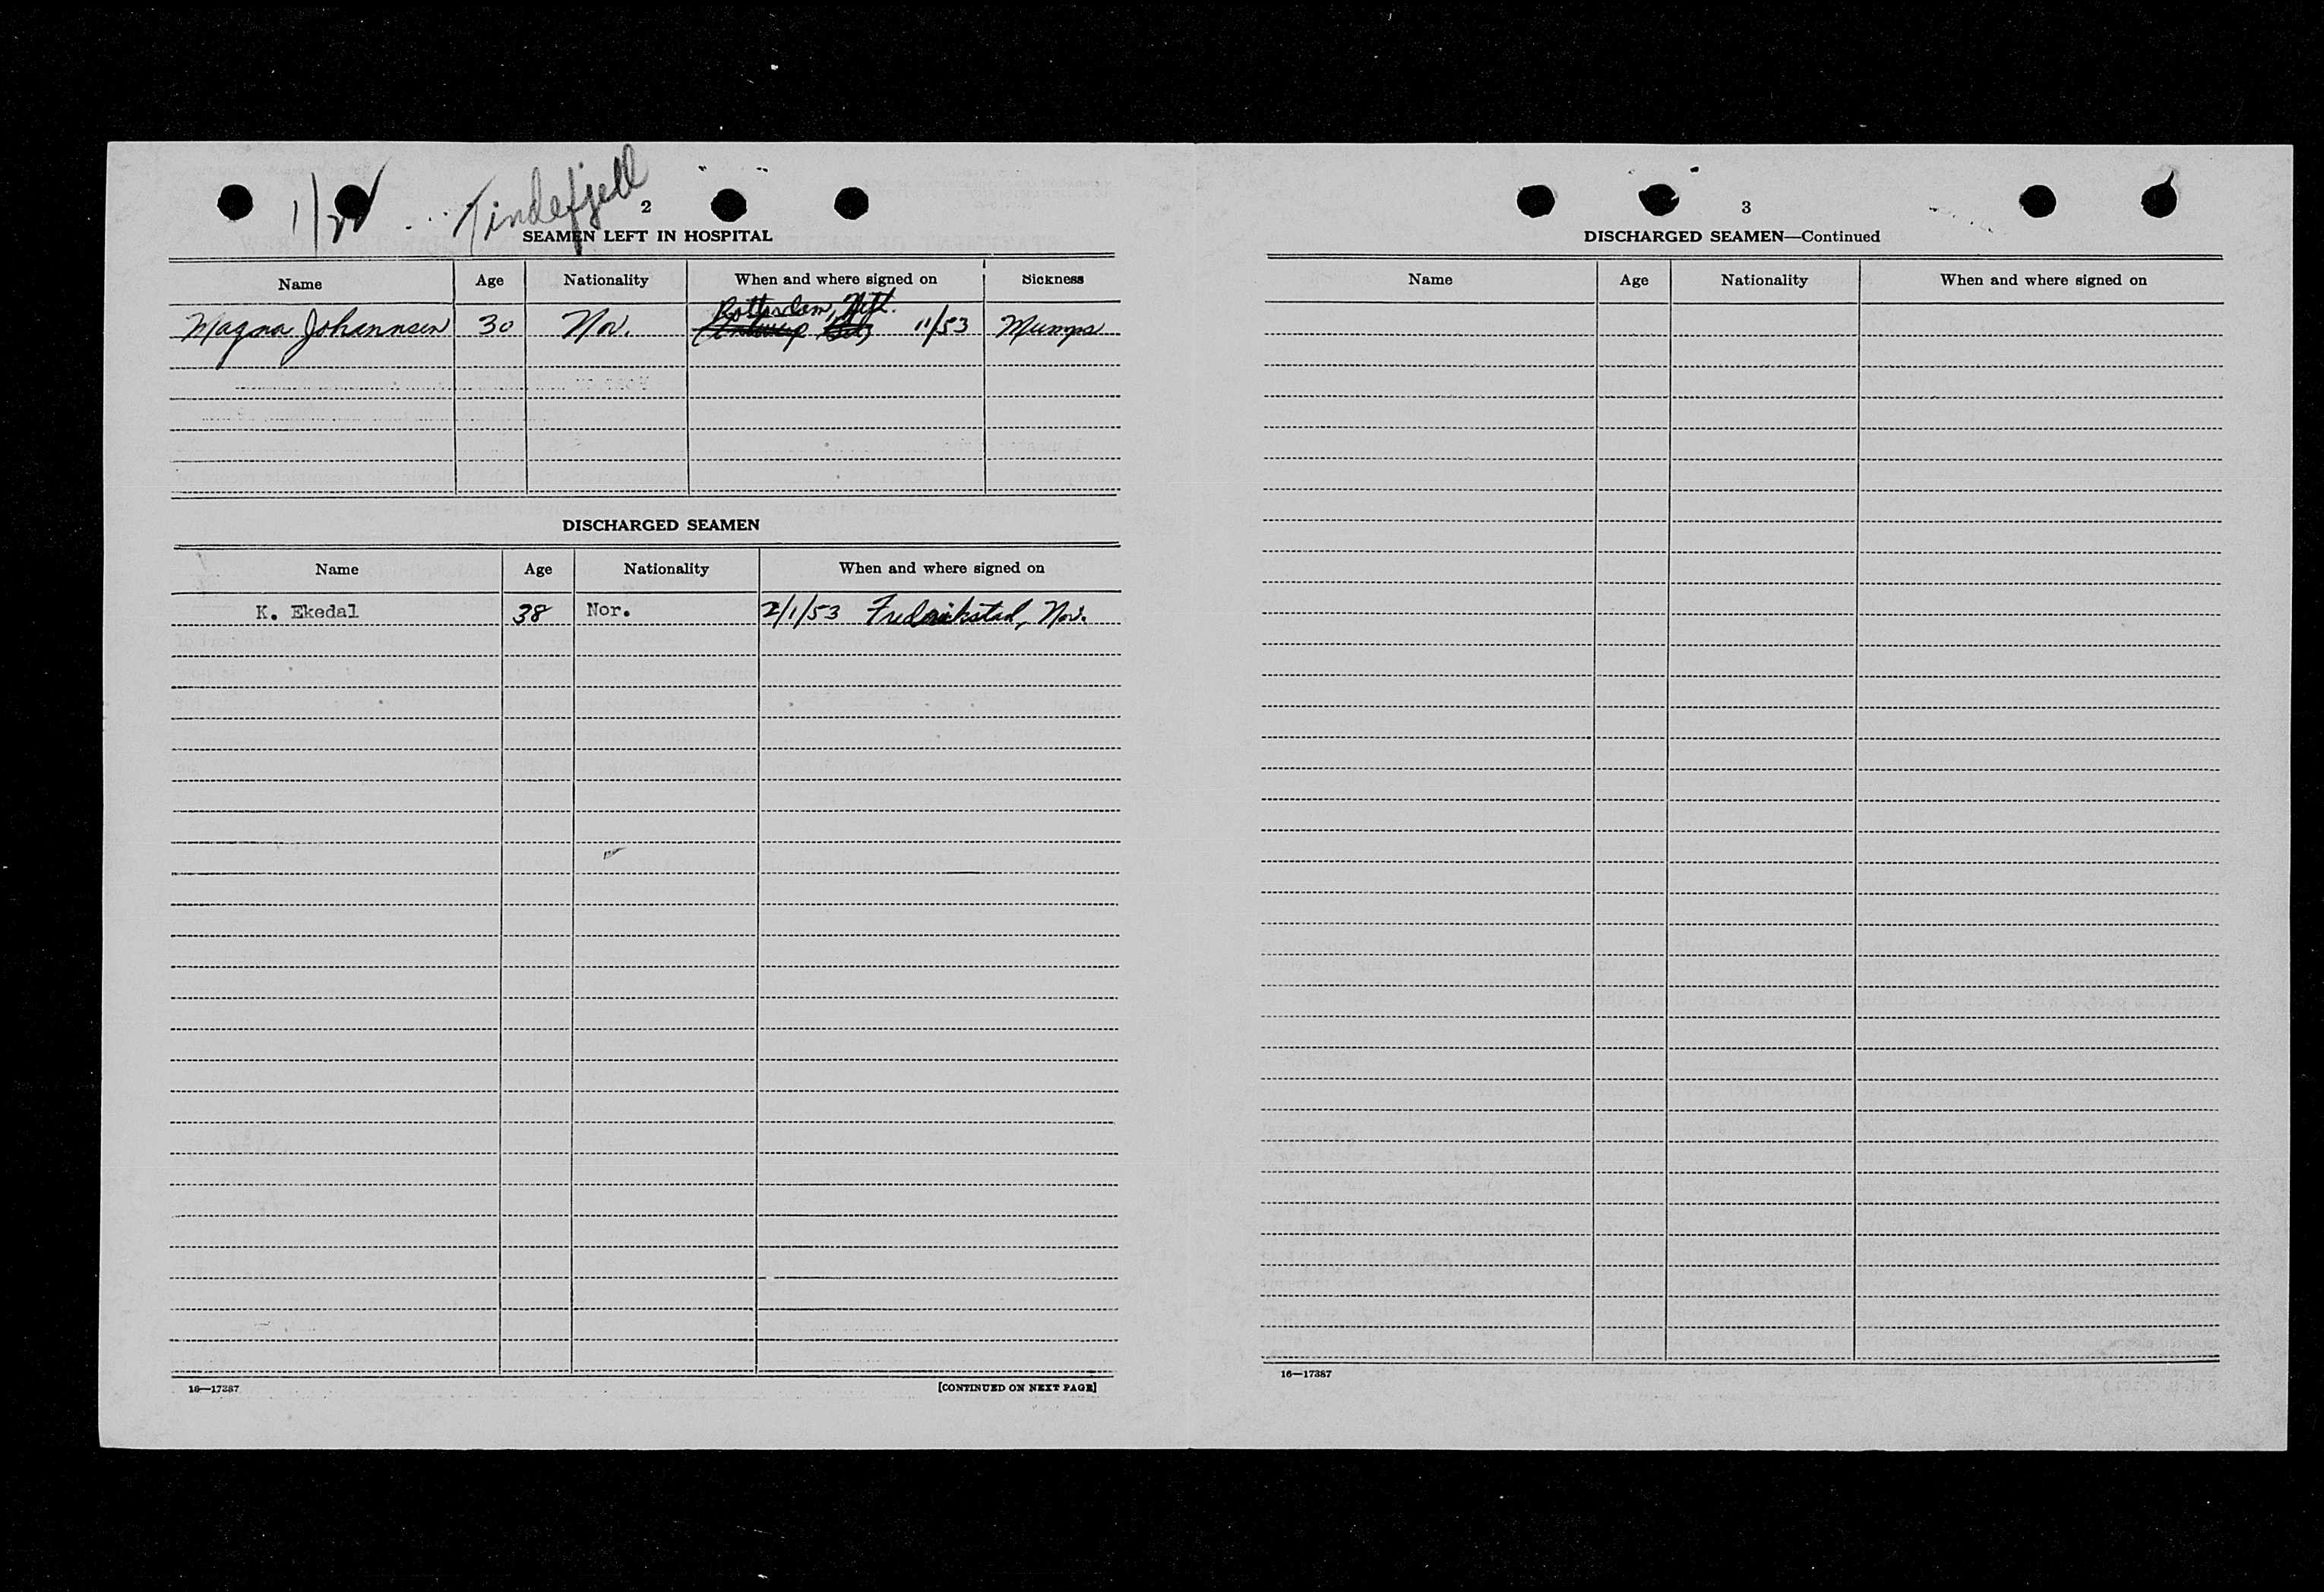 1/22 Tindefjell
2
SEAMEN LEFT IN HOSPITAL
Name Age Nationality When and where signed on Sickness
Rotterdam, Neth.
Magna Johannsen 30 Nor. Antwerp 11/53 Mumps
DISCHARGED SEAMEN
Name Age Nationality When and where signed on
K. Ekedal 38 Nor. 2/1/53 Fredrikstad, Nor.
16—17387 [CONTINUED ON NEXT PAGE]
3
DISCHARGED SEAMEN—Continued
Name Age Nationality When and where signed on
16—17387